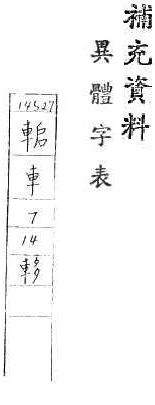 補充資料
異體字表
14527
車
7
14